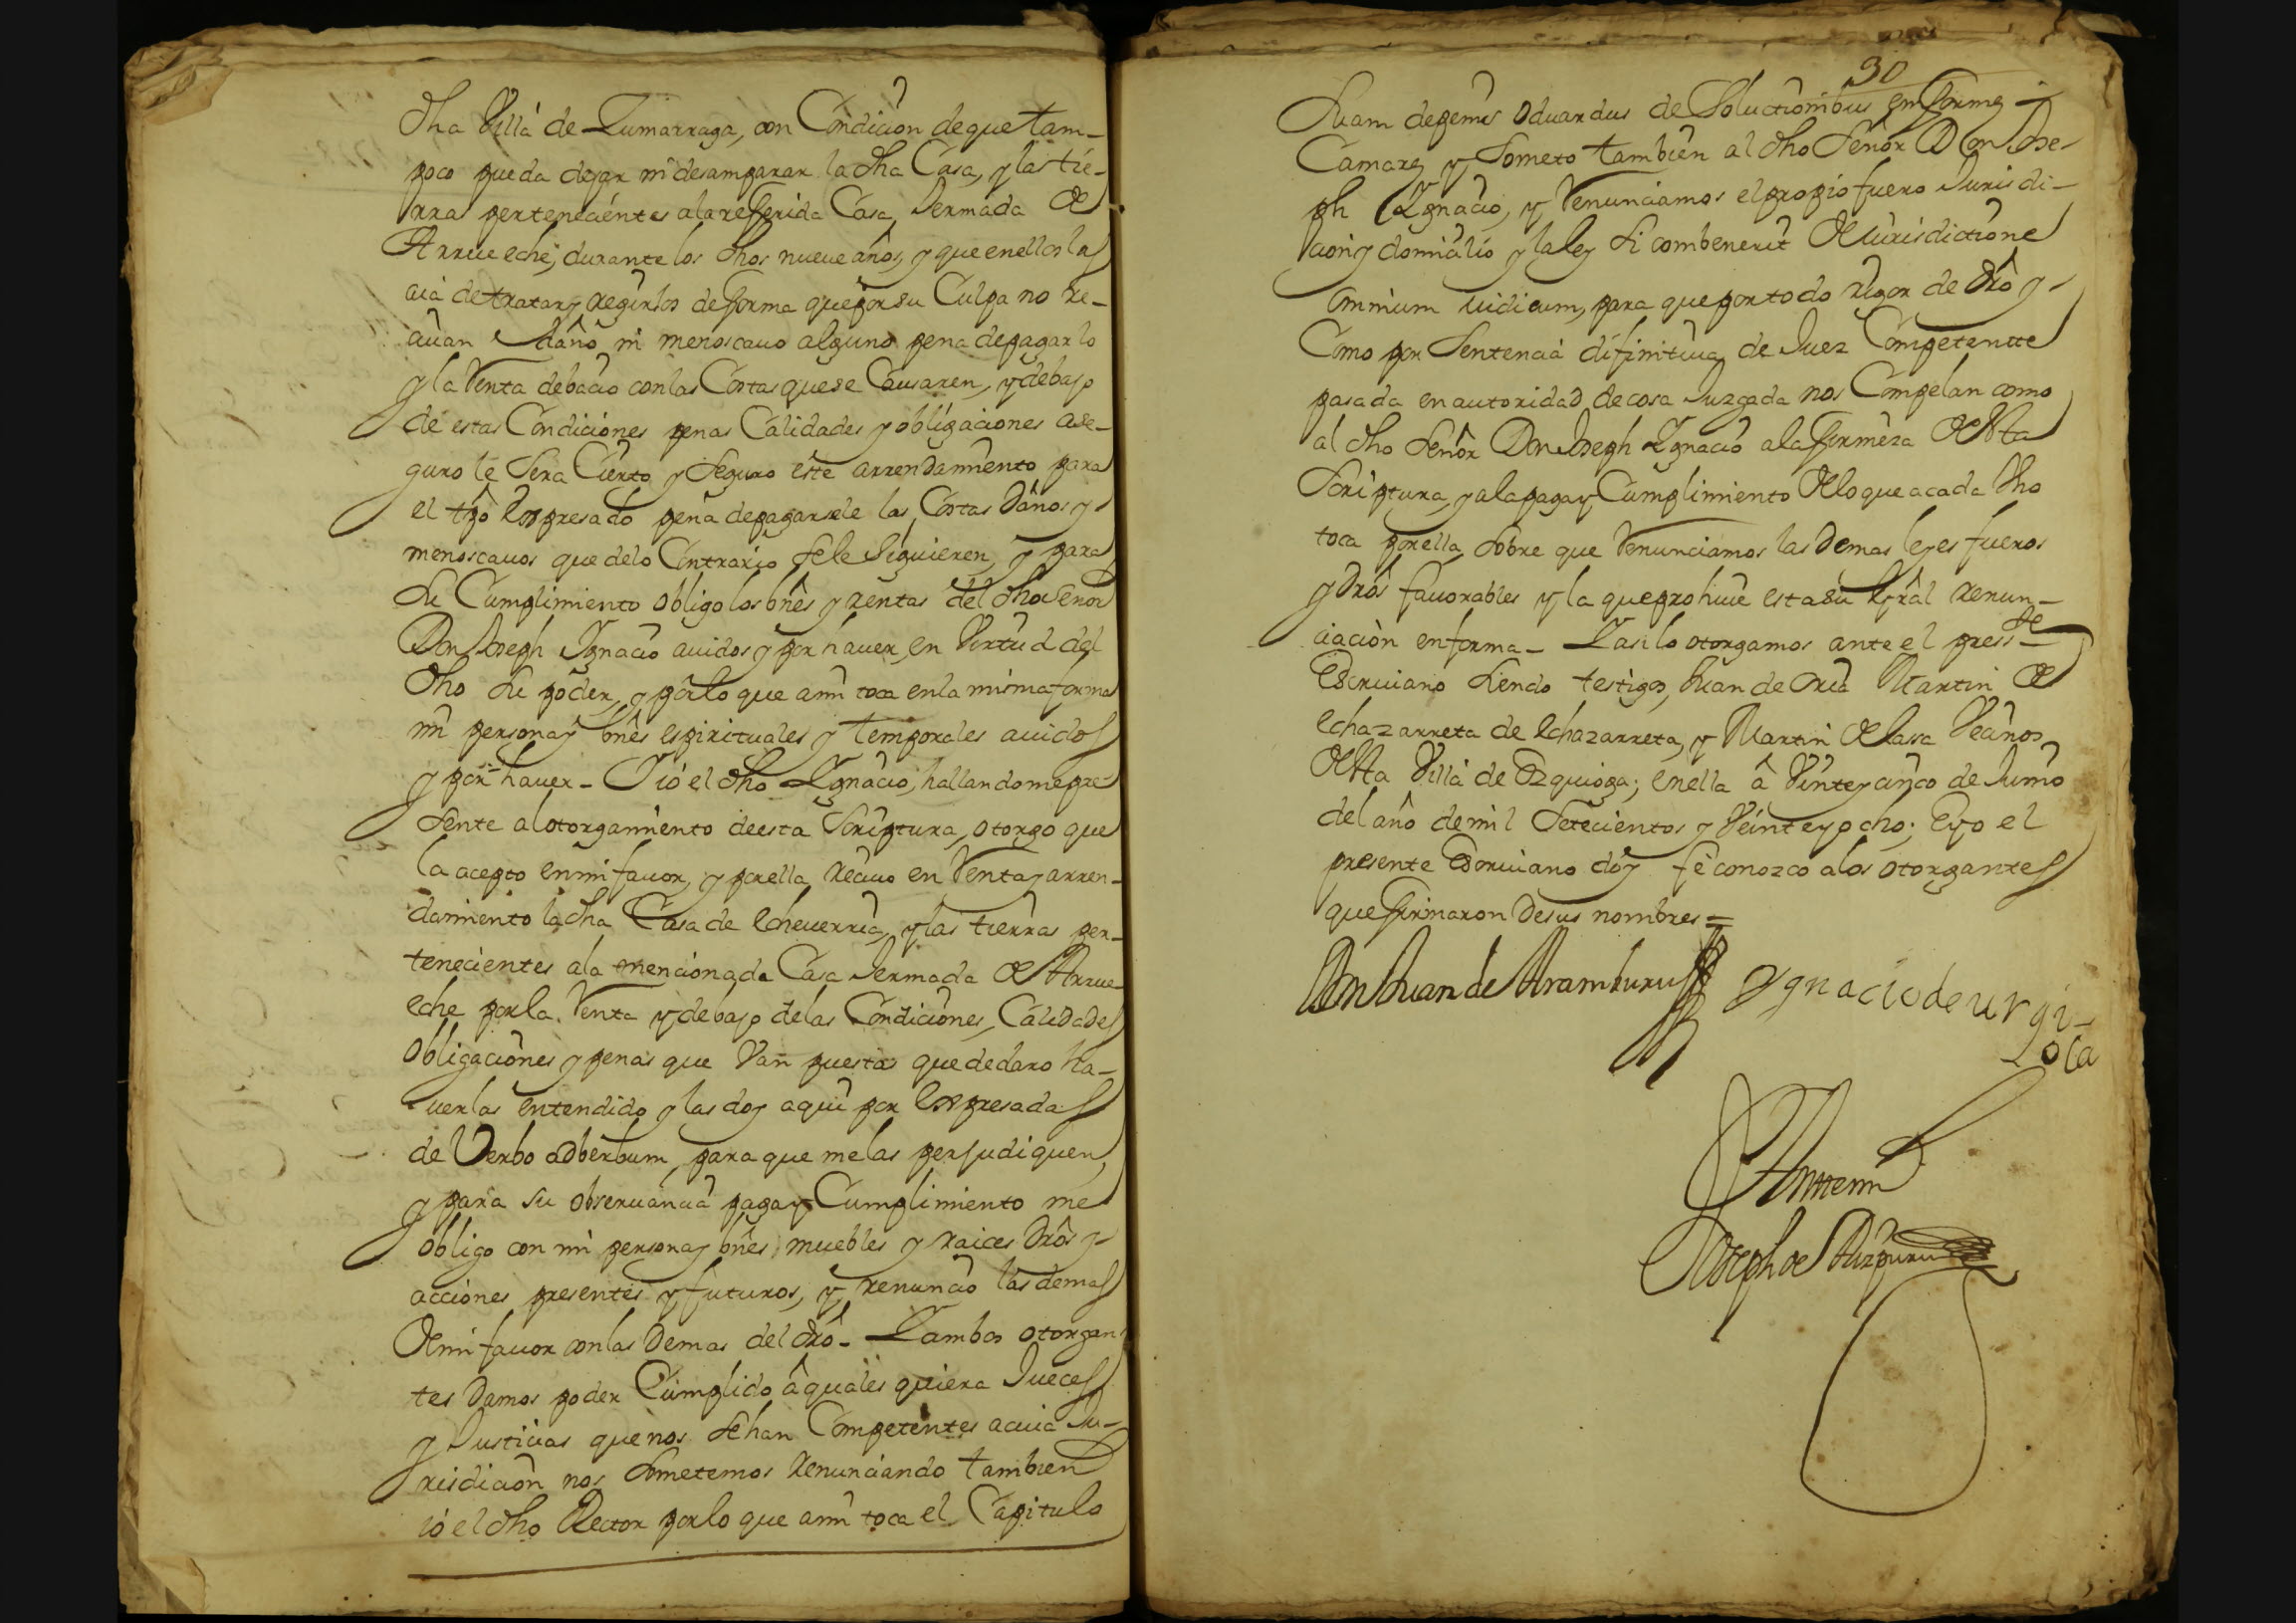 dha Villa de Zumarraga, con Condicion de que tam-
poco pueda dejar ni desamparar la dha Casa, y las tie-
rras pertenecientes ala referida Casa, Iermada de
Arrue eche, durante los dhos nueve años, y que en ellos las
aia de tratar y regirlos de forma que por su Culpa no re-
ciuan daño ni menoscauo alguno pena de pagarlo
y la Renta de bacio con las Costas que se Causaren, y debajo
de estas Condiciones penas Calidades y obligaciones ase-
guro le sera Cierto y seguro este arrendamiento para
el tpô expresado pena de pagarsele las Costas daños y
menoscauos que delo Contrario se le siguieren, y para
su Cumplimiento obligo los bnês y rentas del dho señor
Don Joseph Ignacio auidos y por hauer, en Virtud del
dho su poder, y por lo que ami toca en la misma forma
mi persona y bnês espirituales y temporales auidos
y por hauer - Y ió el dho Ygnacio, hallandome pre-
sente al otorgamiento de esta Scriptura, otorgo que
la acepto en mi fauor, y por ella reciuo en Renta y arren-
damiento la dha Casa de Echeuerria, y las tierras per-
tenecientes ala mencionada Casa Iermada de Arrue-
eche por la Renta y debajo de las Condiciones, Calidades
obligaciones y penas que Van puestas que declaro ha-
uerlas entendido y las doy aqui por expresadas
de Verbo adberbum, para que me las perjudiquen,
y para su obseruancia paga y Cumplimiento me
obligo con mi persona y bnês muebles y raices drôs y
acciones presentes y futuros, y renuncio las demas
de mi fauor con las demas del drô - Y ambos otorgan-
tes damos poder Cumplido â quales quiera Jueces
y Justicias que nos sehan Competentes acuia Ju-
risdicion nos sometemos Renunciando tambien
ió el dho Rector por lo que ami toca el Capitulo
30
suam de penis Oduardus de Solutionibus en forma
Camara, y someto tambien al dho Señor Don Jose-
ph Ygnacio, y Renunciamos el propio fuero Jurisdi-
cion y domicilio y la ley si combenerit de Jurisdictione
omnium iudicum, para que por todo rigor de drô y
Como por Sentencia difinitiua de Juez Competentte
pasada en autoridad de cosa Juzgada nos Compelan como
al dho señor Don Joseph Ygnacio ala firmeza de esta
Scriptura, y ala paga y Cumplimiento de lo que a cada dho
toca por ella, sobre que Renunciamos las demas leyes fueros
y drôs fauorables y la que prohiue esta su gral renun-
ciaciòn en forma - Y asi lo otorgamos ante el press.te
Escriuano siendo testigos, Juan de Oria Martin de
Echazarreta de Echazarreta, y Martin de lasa Vecinos
de esta Villa de Ezquioga; en ella â Veinte y cinco de Junio
del año de mil setecientos y Veinte y ocho; E yo el
presente Escriuano doy fe conozco a los otorgantes
que firmaron de sus nombres =
Don Juan de Aramburu Ygnacio de urgi-
ola
Ante mi
Joseph de Aizpuru